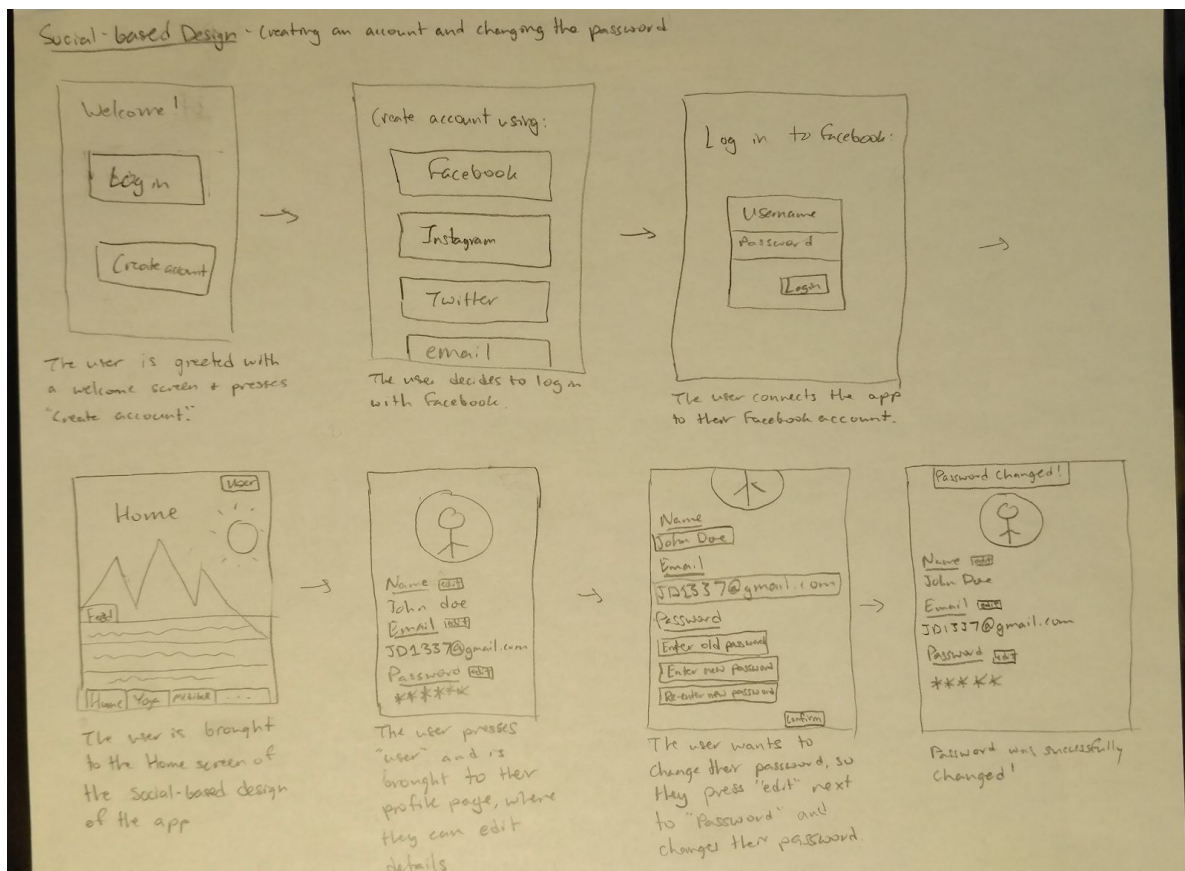 Social-based Design - Creating an account and changing the password
Welcome!
Log in
Create account
The user is greeted with
a welcome screen + presses
"Create account."
Create account using:
Facebook
Instagram
Twitter
email
The user decides to log in
with Facebook.
Log in to Facebook:
Username
Password
Login
The user connects the app
to their Facebook account.
User
Home
Feed
Home Yoga ...
The user is brought
to the Home screen of
the social-based design
of the app
Name edit
John doe
Email edit
JD1337@gmail.com
Password edit
******
The user presses
"user" and is
brought to their
profile page, where
they can edit
details
Name
John Doe
Email
JD1337@gmail.com
Password
Enter old password
Enter new password
Re-enter new password
Confirm
The user wants to
change their password, so
they press "edit" next
to "Password" and
changes their password.
Password Changed!
Name edit
John Doe
Email edit
JD1337@gmail.com
Password edit
*****
Password was successfully
changed!